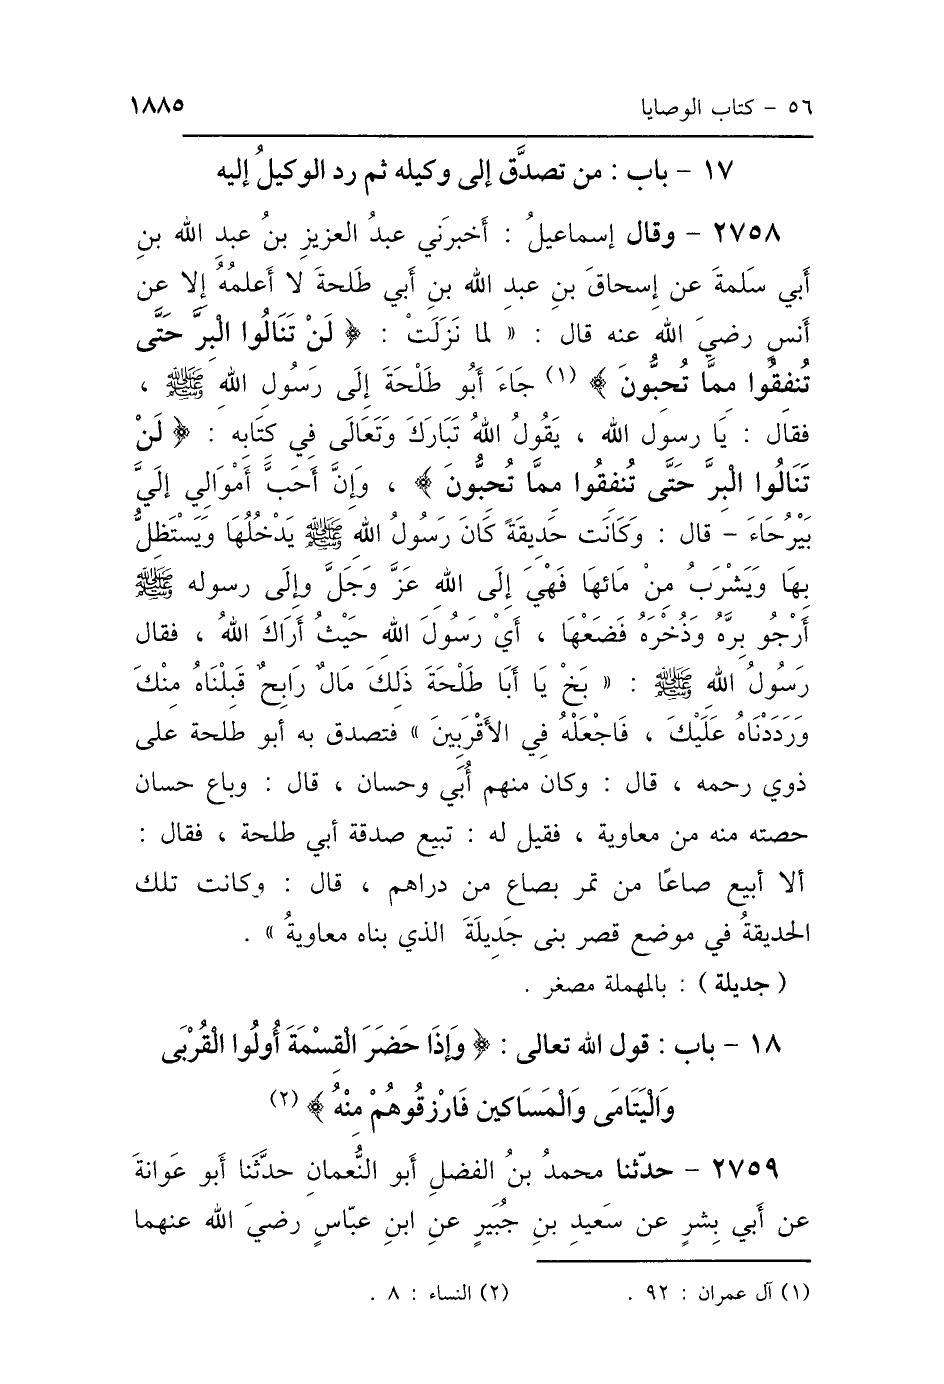 ٥٦ - كتاب الوصايا ١٨٨٥
١٧ - باب : من تصدَّق إلى وكيله ثم رد الوكيلُ إليه
٢٧٥٨ - وقال إسماعيلُ : أَخبرنَي عبدُ العزيزِ بنُ عبدِ الله بنِ
أَبي سَلمةَ عن إِسحاقَ بنِ عبد الله بنِ أَبي طَلحةَ لا أَعلمُهُ إلا عن
أَنسٍ رضيَ الله عنه قال : « لما نَزَلَتْ : ﴿ لَنْ تَنَالُوا الْبِرَّ حَتَّى
تُنفقُوا ممَّا تُحبُّونَ ﴾ (١) جَاءَ أَبُو طَلْحَةَ إِلَى رَسُولِ الله ﷺ ،
فقال : يَا رسولَ الله ، يَقُولُ اللهُ تَبَارَكَ وَتَعَالَى فِي كتَابِه : ﴿ لَنْ
تَنَالُوا الْبِرَّ حَتَّى تُنفقُوا ممَّا تُحبُّونَ ﴾ ، وَإِنَّ أَحَبَّ أَمْوَالِي إِلَيَّ
بَيْرحَاءَ - قال : وَكَانَت حَديقَةً كَانَ رَسُولُ الله ﷺ يَدْخُلُهَا وَيَسْتَظلُّ
بِهَا وَيَشْرَبُ مِنْ مَائهَا فَهْيَ إِلَى الله عَزَّ وَجَلَّ وإِلَى رسوله ﷺ
أَرْجُو بِرَّهُ وَذُخْرَهُ فَضَعْهَا ، أَيْ رَسُولَ الله حَيْثُ أَرَاكَ اللهُ ، فقال
رَسُولُ الله ﷺ : « بَخْ يَا أَبَا طَلْحَةَ ذَلكَ مَالٌ رَابِحٌ قَبلْنَاهُ منْكَ
وَرَدَدْنَاهُ عَلَيْكَ ، فَاجْعَلْهُ فِي الأَقْرَبِينَ » فتصدق به أبو طلحة على
ذوي رحمه ، قال : وكان منهم أُبَي وحسان ، قال : وباع حسان
حصته منه من معاوية ، فقيل له : تبيع صدقة أبي طلحة ، فقال :
ألا أبيع صاعًا من تمر بصاع من دراهم ، قال : وكانت تلك
الحديقةُ في موضع قصر بنى جَدِيلَةَ الذي بناه معاويةُ » .
( جديلة ) : بالمهملة مصغر .
١٨ - باب : قول الله تعالى : ﴿ وَإِذَا حَضَرَ الْقِسْمَةَ أُولُوا الْقُرْبَى
وَالْيَتَامَى وَالْمَسَاكين فَارْزُقُوهُمْ مِنْهُ ﴾ (٢)
٢٧٥٩ - حدّثنا محمدُ بنُ الفضلِ أَبو النُّعمانِ حدَّثَنا أَبو عَوانةَ
عن أَبي بِشرٍ عن سَعيدِ بنِ جُبَيرٍ عنِ ابنِ عبّاسٍ رضيَ الله عنهما
(١) آل عمران : ٩٢ . (٢) النساء : ٨ .